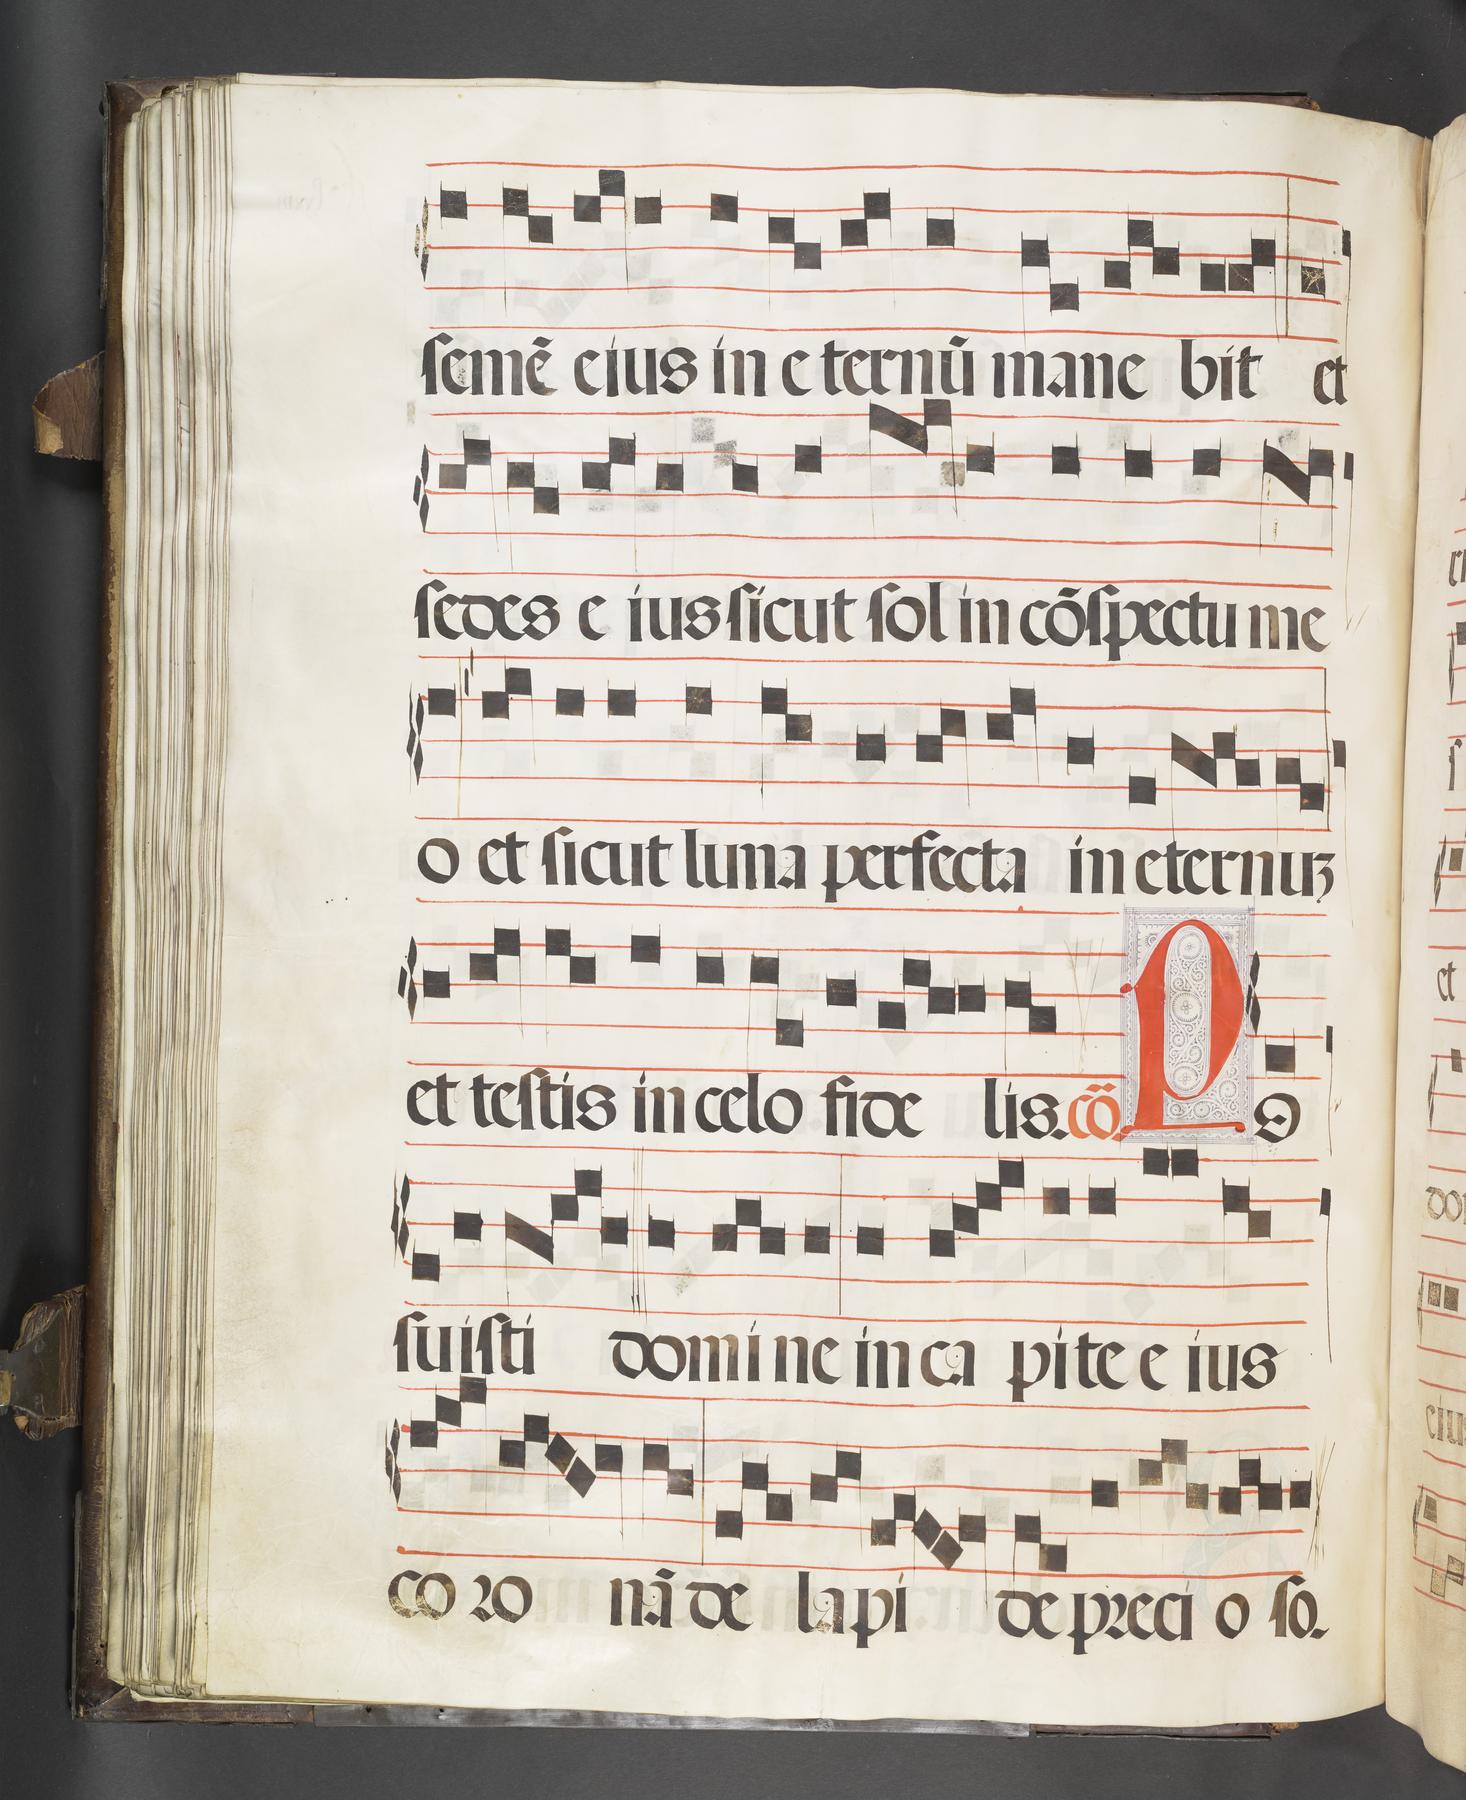 semē eius in e ternū mane bit et
sedes e ius sicut sol in cōspectu me
o et sicut luna perfecta in eternuꝫ
et testis in celo fide lis. cō. PO
suisti domi ne in ca pite e ius
co ro nā de lapi de preci o so.